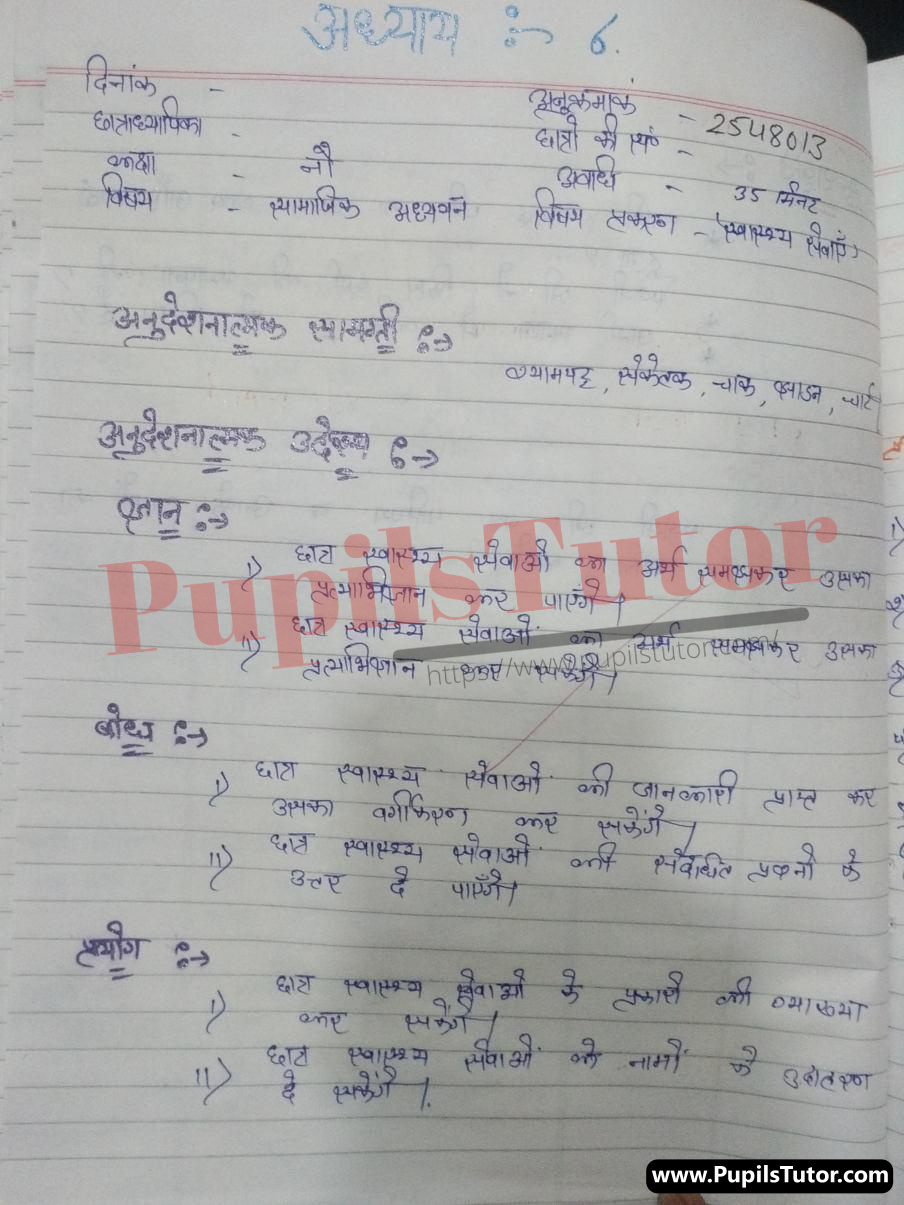 अध्याय :- 6.
दिनांक -
अनुक्रमांक - 2548013
छात्राध्यापिका -
छात्रों की सं० -
कक्षा - नौ
अवधि - 35 मिनट
विषय - सामाजिक अध्ययन
विषय प्रकरण - स्वास्थ्य सेवाएँ
अनुदेशनात्मक सामग्री :->
श्यामपट्ट, संकेतक, चाक, झाडन, चार्ट
अनुदेशनात्मक उद्देश्य :->
ज्ञान :->
i) छात्र स्वास्थ्य सेवाओं का अर्थ समझकर उसका
प्रत्याभिज्ञान कर पाएंगे।
ii) छात्र स्वास्थ्य सेवाओं का अर्थ समझकर उसका
प्रत्याभिज्ञान कर सकेंगे।
बोध :->
i) छात्र स्वास्थ्य सेवाओं की जानकारी प्राप्त कर
उसका वर्गीकरण कर सकेंगे।
ii) छात्र स्वास्थ्य सेवाओं की संबंधित प्रश्नों के
उत्तर दे पाएँगे।
प्रयोग :->
i) छात्र स्वास्थ्य सेवाओं के प्रकारों की व्याख्या
कर सकेंगे।
ii) छात्र स्वास्थ्य सेवाओं के नामों के उदाहरण
दे सकेंगे।
PupilsTutor
www.PupilsTutor.com